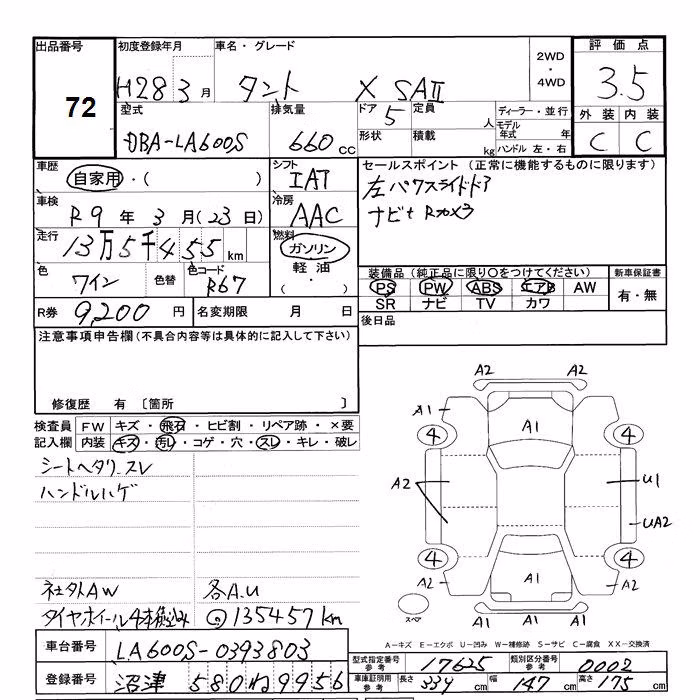 出品番号 初度登録年月 車名・グレード 2WD・4WD 評価点
72 H28 3月 タント X SAⅡ 3.5
型式 排気量 ドア 5 定員 人 ディーラー・並行 外装 内装
DBA-LA600S 660cc 形状 積載 kg モデル年式 年 ハンドル 左・右 C C
車歴 自家用・( ) シフト IAT セールスポイント (正常に機能するものに限ります)
車検 R9年 3月(23日) 冷房 AAC 左パワスライドドア
ナビt Rカメラ
走行 13万5千455km 燃料 ガソリン・軽油・( )
色 ワイン 色替 色コード R67
装備品(純正品に限り○をつけてください) 新車保証書
PS PW ABS エアB AW 有・無
SR ナビ TV カワ
R券 9,200円 名変期限 月 日
後日品
注意事項申告欄(不具合内容等は具体的に記入して下さい)
修復歴 有 〔箇所 〕
検査員 FW キズ・飛石・ヒビ割・リペア跡・×要
記入欄 内装 キズ・汚レ・コゲ・穴・スレ・キレ・破レ
シートヘタリ.スレ
ハンドルハゲ
社外AW 各A.U
タイヤホイール4本組込み 135457km
A2 A2
A1 A1 A1
4 4
A2 U1
UA2
4 4
A2 A1 A2
A1 A1 A1
スペア
A-キズ E-エクボ U-凹み W-補修跡 S-サビ C-腐食 XX-交換済
車台番号 LA600S-0393803
登録番号 沼津 580 ね 9956
型式指定番号 参考 17625 類別区分番号 参考 0002
車庫証明用 参考 長さ 339cm 幅 147cm 高さ 175cm